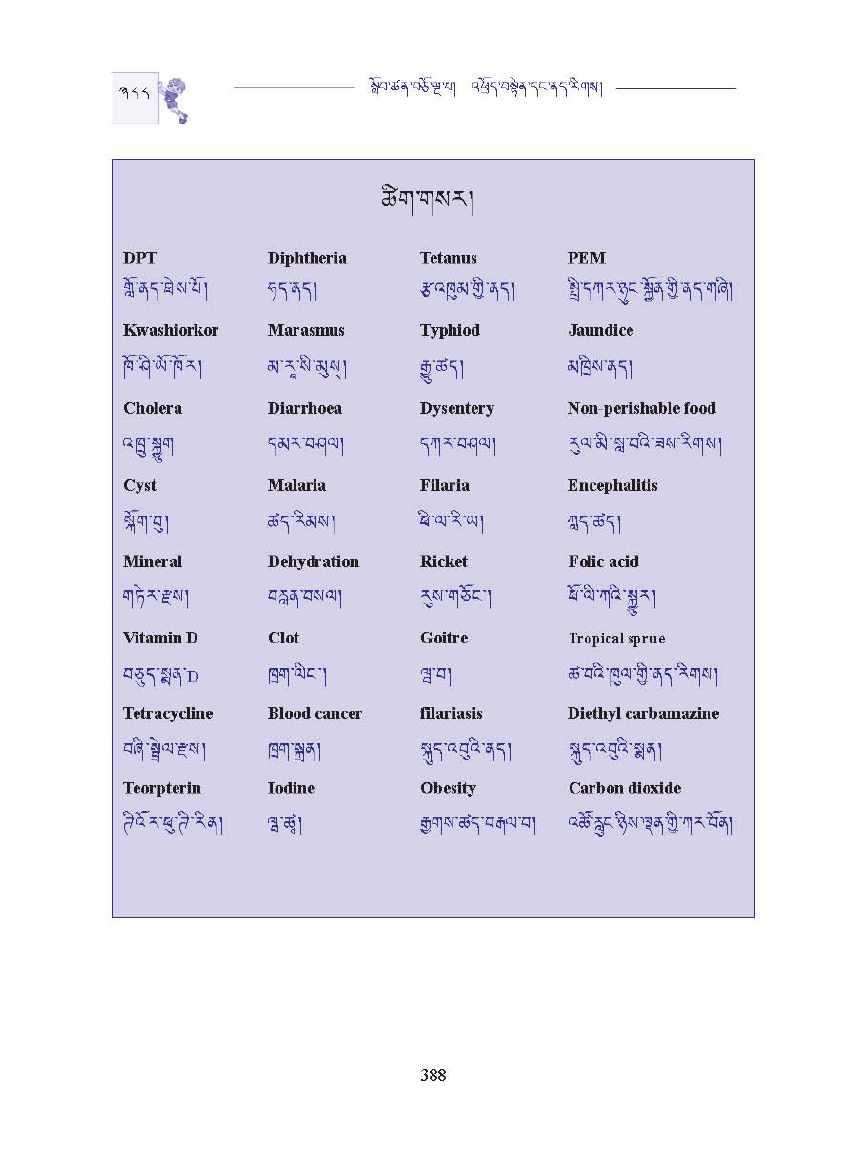 ༣༨༨ སློབ་ཚན་བཅོ་ལྔ་པ། འཕྲོད་བསྟེན་དང་ནད་རིགས།
ཚིག་གསར།
DPT Diphtheria Tetanus PEM
གློ་ནད་ཐེས་པོ། ཧད་ནད། རྩ་འཁུམ་གྱི་ནད། སྤྲི་དཀར་ཉུང་སྐྱོན་གྱི་ནད་གཞི།
Kwashiorkor Marasmus Typhiod Jaundice
ཁོ་ཤི་ཡོ་ཁོར། མ་རཱ་སི་མུས། རྒྱུ་ཚད། མཁྲིས་ནད།
Cholera Diarrhoea Dysentery Non-perishable food
འཁྲུ་སྐྱུག དམར་བཤལ། དཀར་བཤལ། རུལ་མི་སླ་བའི་ཟས་རིགས།
Cyst Malaria Filaria Encephalitis
སྐོག་བུ། ཚད་རིམས། ཕི་ལ་རི་ཡ། ཀླད་ཚད།
Mineral Dehydration Ricket Folic acid
གཏེར་རྫས། བརླན་བསལ། རུས་གཅོང་། ཕོ་ལི་ཀའི་སྐྱུར།
Vitamin D Clot Goitre Tropical sprue
བཅུད་སྨན་D ཁྲག་ལིང་། ལྦ་བ། ཚ་བའི་ཁུལ་གྱི་ནད་རིགས།
Tetracycline Blood cancer filariasis Diethyl carbamazine
བཞི་སྦྲེལ་རྫས། ཁྲག་སྐྲན། སྐུད་འབུའི་ནད། སྐུད་འབུའི་སྨན།
Teorpterin Iodine Obesity Carbon dioxide
ཊི་འོར་ཕུ་ཊི་རིན། ལྦ་ཚྭ། རྒྱགས་ཚད་བརྒལ་བ། འཚོ་རླུང་ཉིས་ལྡན་གྱི་ཀར་བོན།
388